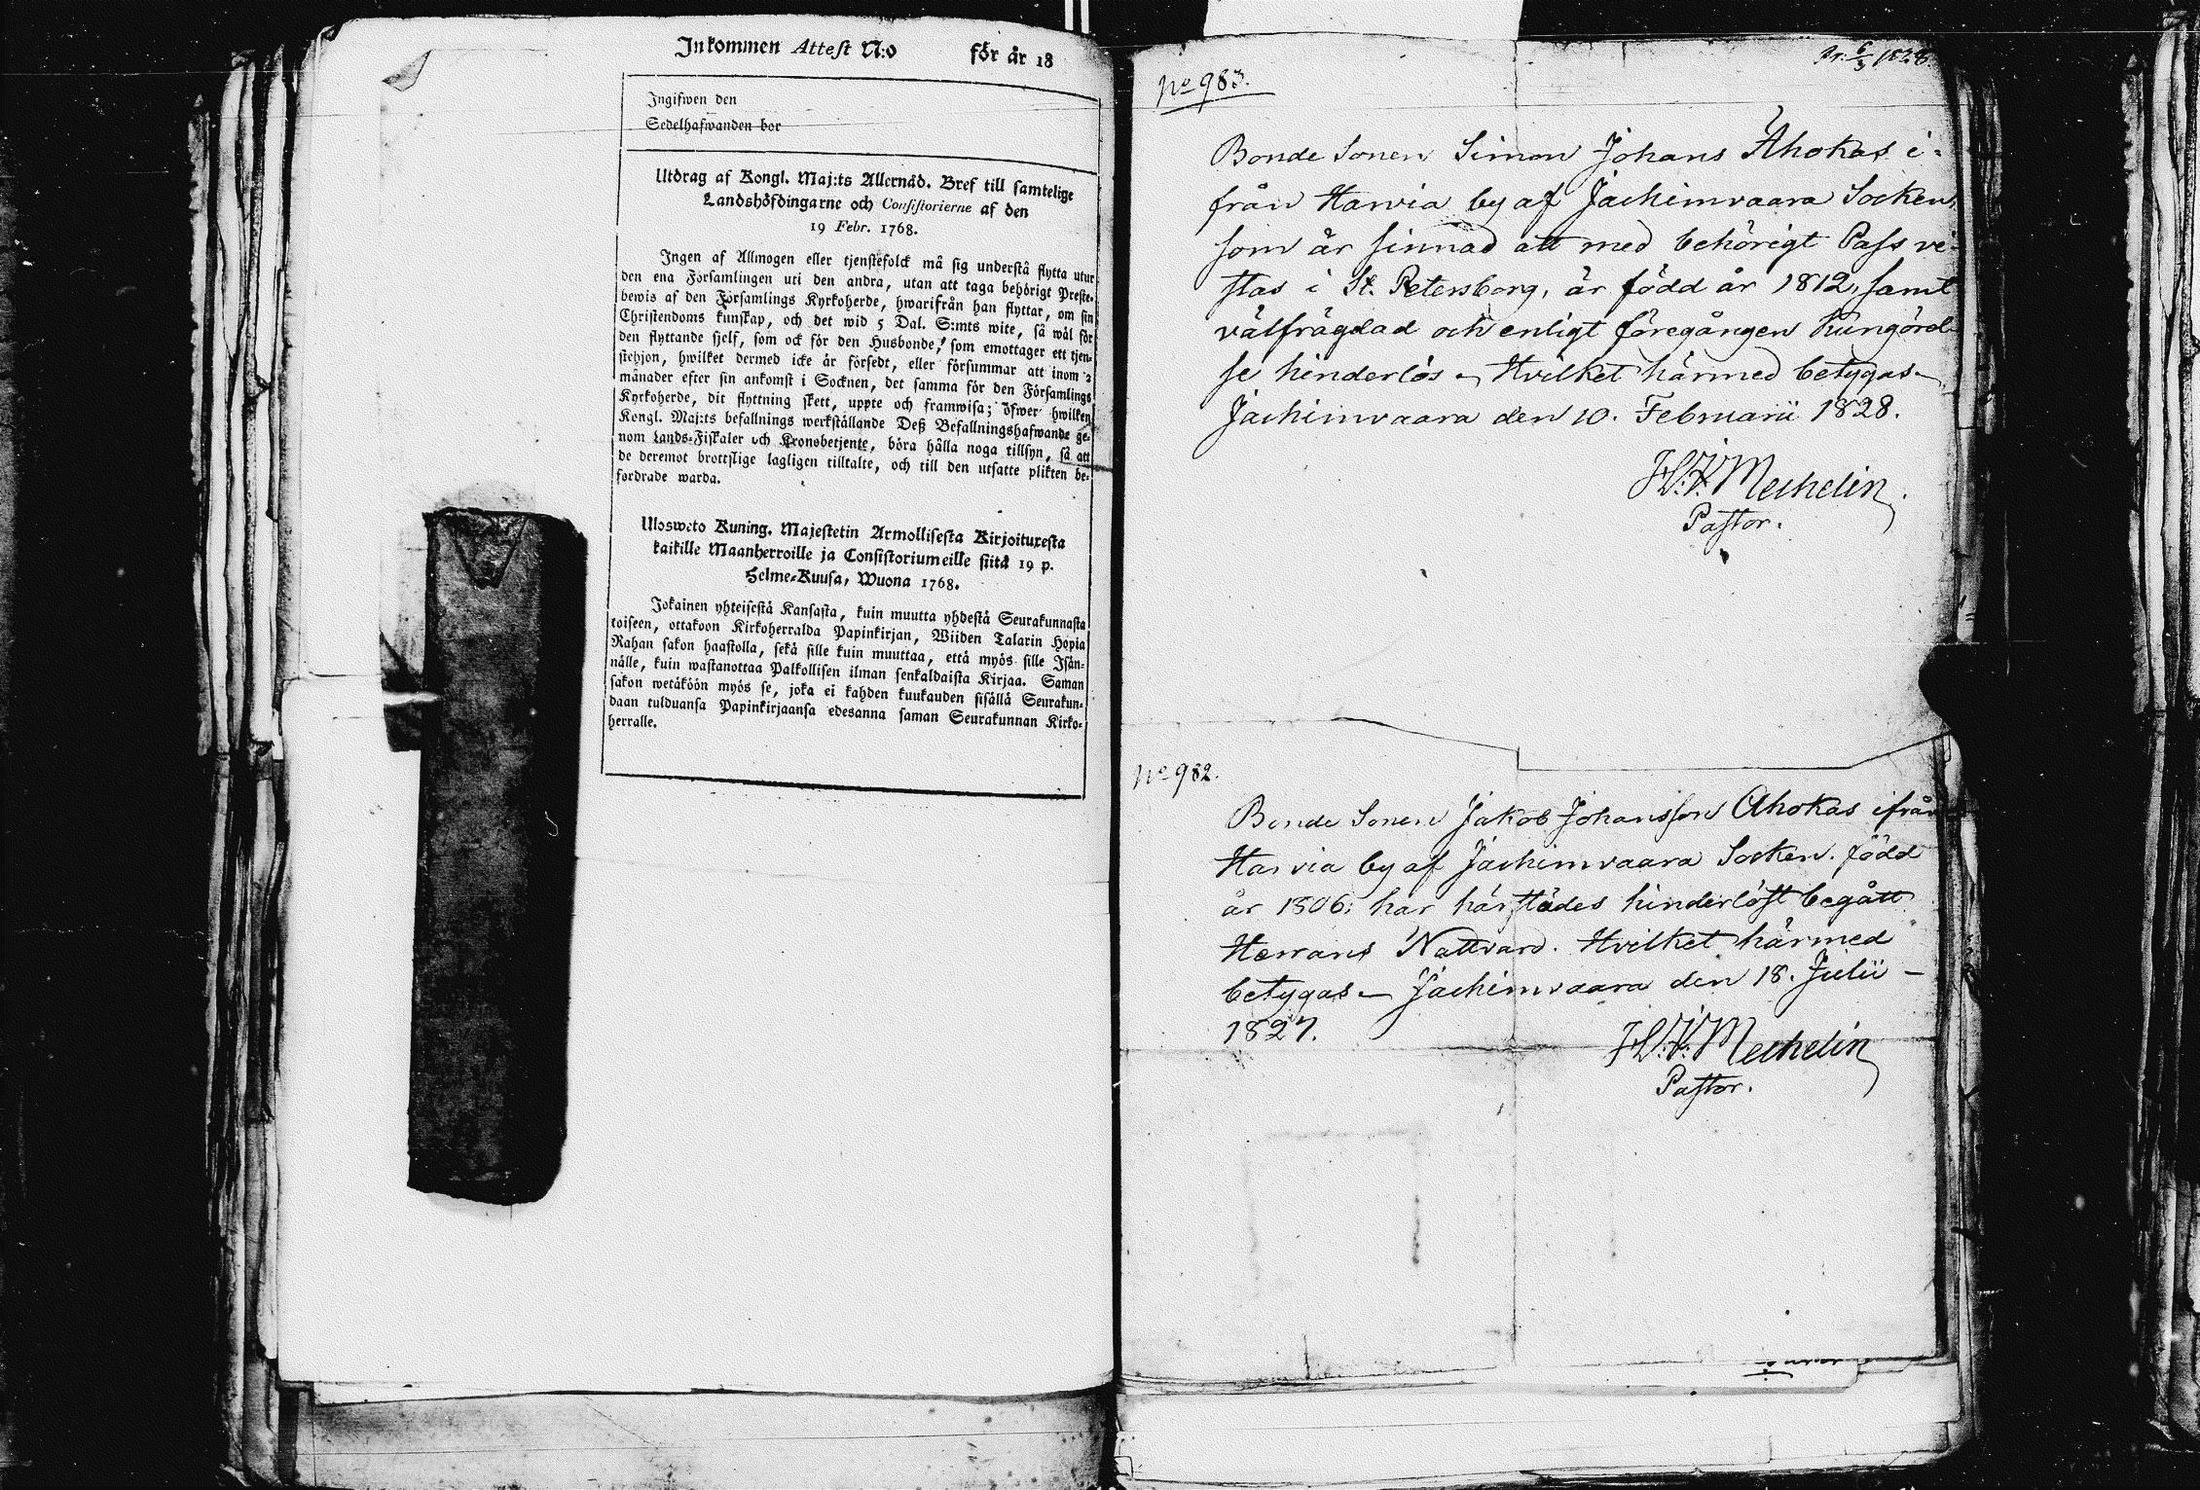 Inkommen Attest N:o för år 18
Ingifwen den
Sedelhafwanden bor
Utdrag af Kongl. Maj:ts Allernåd. Bref till samtelige
Landshöfdingarne och Consistorierne af den
19 Febr. 1768.
Ingen af Allmogen eller tjenstefolck må sig understå flytta utur
den ena Församlingen uti den andra, utan att taga behörigt Preste-
bewis af den Församlings Kyrkoherde, hwarifrån han flyttar, om sin
Christendoms kunskap, och det wid 5 Dal. S:mts wite, så wäl för
den flyttande sjelf, som ock för den Husbonde, som emottager ett tjen-
stehjon, hwilket dermed icke är försedt, eller försummar att inom 2
månader efter sin ankomst i Socknen, det samma för den Församlings
Kyrkoherde, dit flyttning skett, uppte och framwisa; öfwer hwilken
Kongl. Maj:ts befallnings werkställande Deß Befallningshafwande ge-
nom Lands-Fiskaler och Kronobetjente, böra hålla noga tillsyn, så att
de deremot brottslige lagligen tilltalte, och till den utsatte plikten be-
fordrade warda.
Ulosweto Kuning. Majestetin Armollisesta Kirjoituxesta
kaikille Maanherroille ja Consistoriumeille siitä 19 p.
Helme-Kuusa, Wuona 1768.
Jokainen yhteisestä Kansasta, kuin muutta yhdestä Seurakunnasta
toiseen, ottakoon Kirkoherralda Papinkirjan, Wiiden Talarin Hopia
Rahan sakon haastolla, sekä sille kuin muuttaa, että myös sille Isän-
nälle, kuin wastanottaa Palkollisen ilman senkaldaista Kirjaa. Saman
sakon wetäköön myös se, joka ei kahden kuukauden sisällä Seurakun-
daan tulduansa Papinkirjaansa edesanna saman Seurakunnan Kirko-
herralle.
6/3 1828.
No 983.
Bonde Sonen Simon Johans Ahokas i-
från Harvia by af Jachimvaara Socken,
som är sinnad att med behörigt Pass vi-
stas i St. Petersborg, är född år 1812, samt
välfrägdad och enligt föregången kungörel-
se hinderlös – Hvilket härmed betygas –
Jachimvaara den 10. Februarii 1828.
Mechelin.
Pastor.
No 982.
Bonde Sonen Jakob Johansson Ahokas ifrån
Harvia by af Jachimvaara Socken. född
år 1806; har härstädes hinderlöst begått
Herrans Nattvard. Hvilket härmed
betygas – Jachimvaara den 18. Julii –
1827.
Mechelin
Pastor.